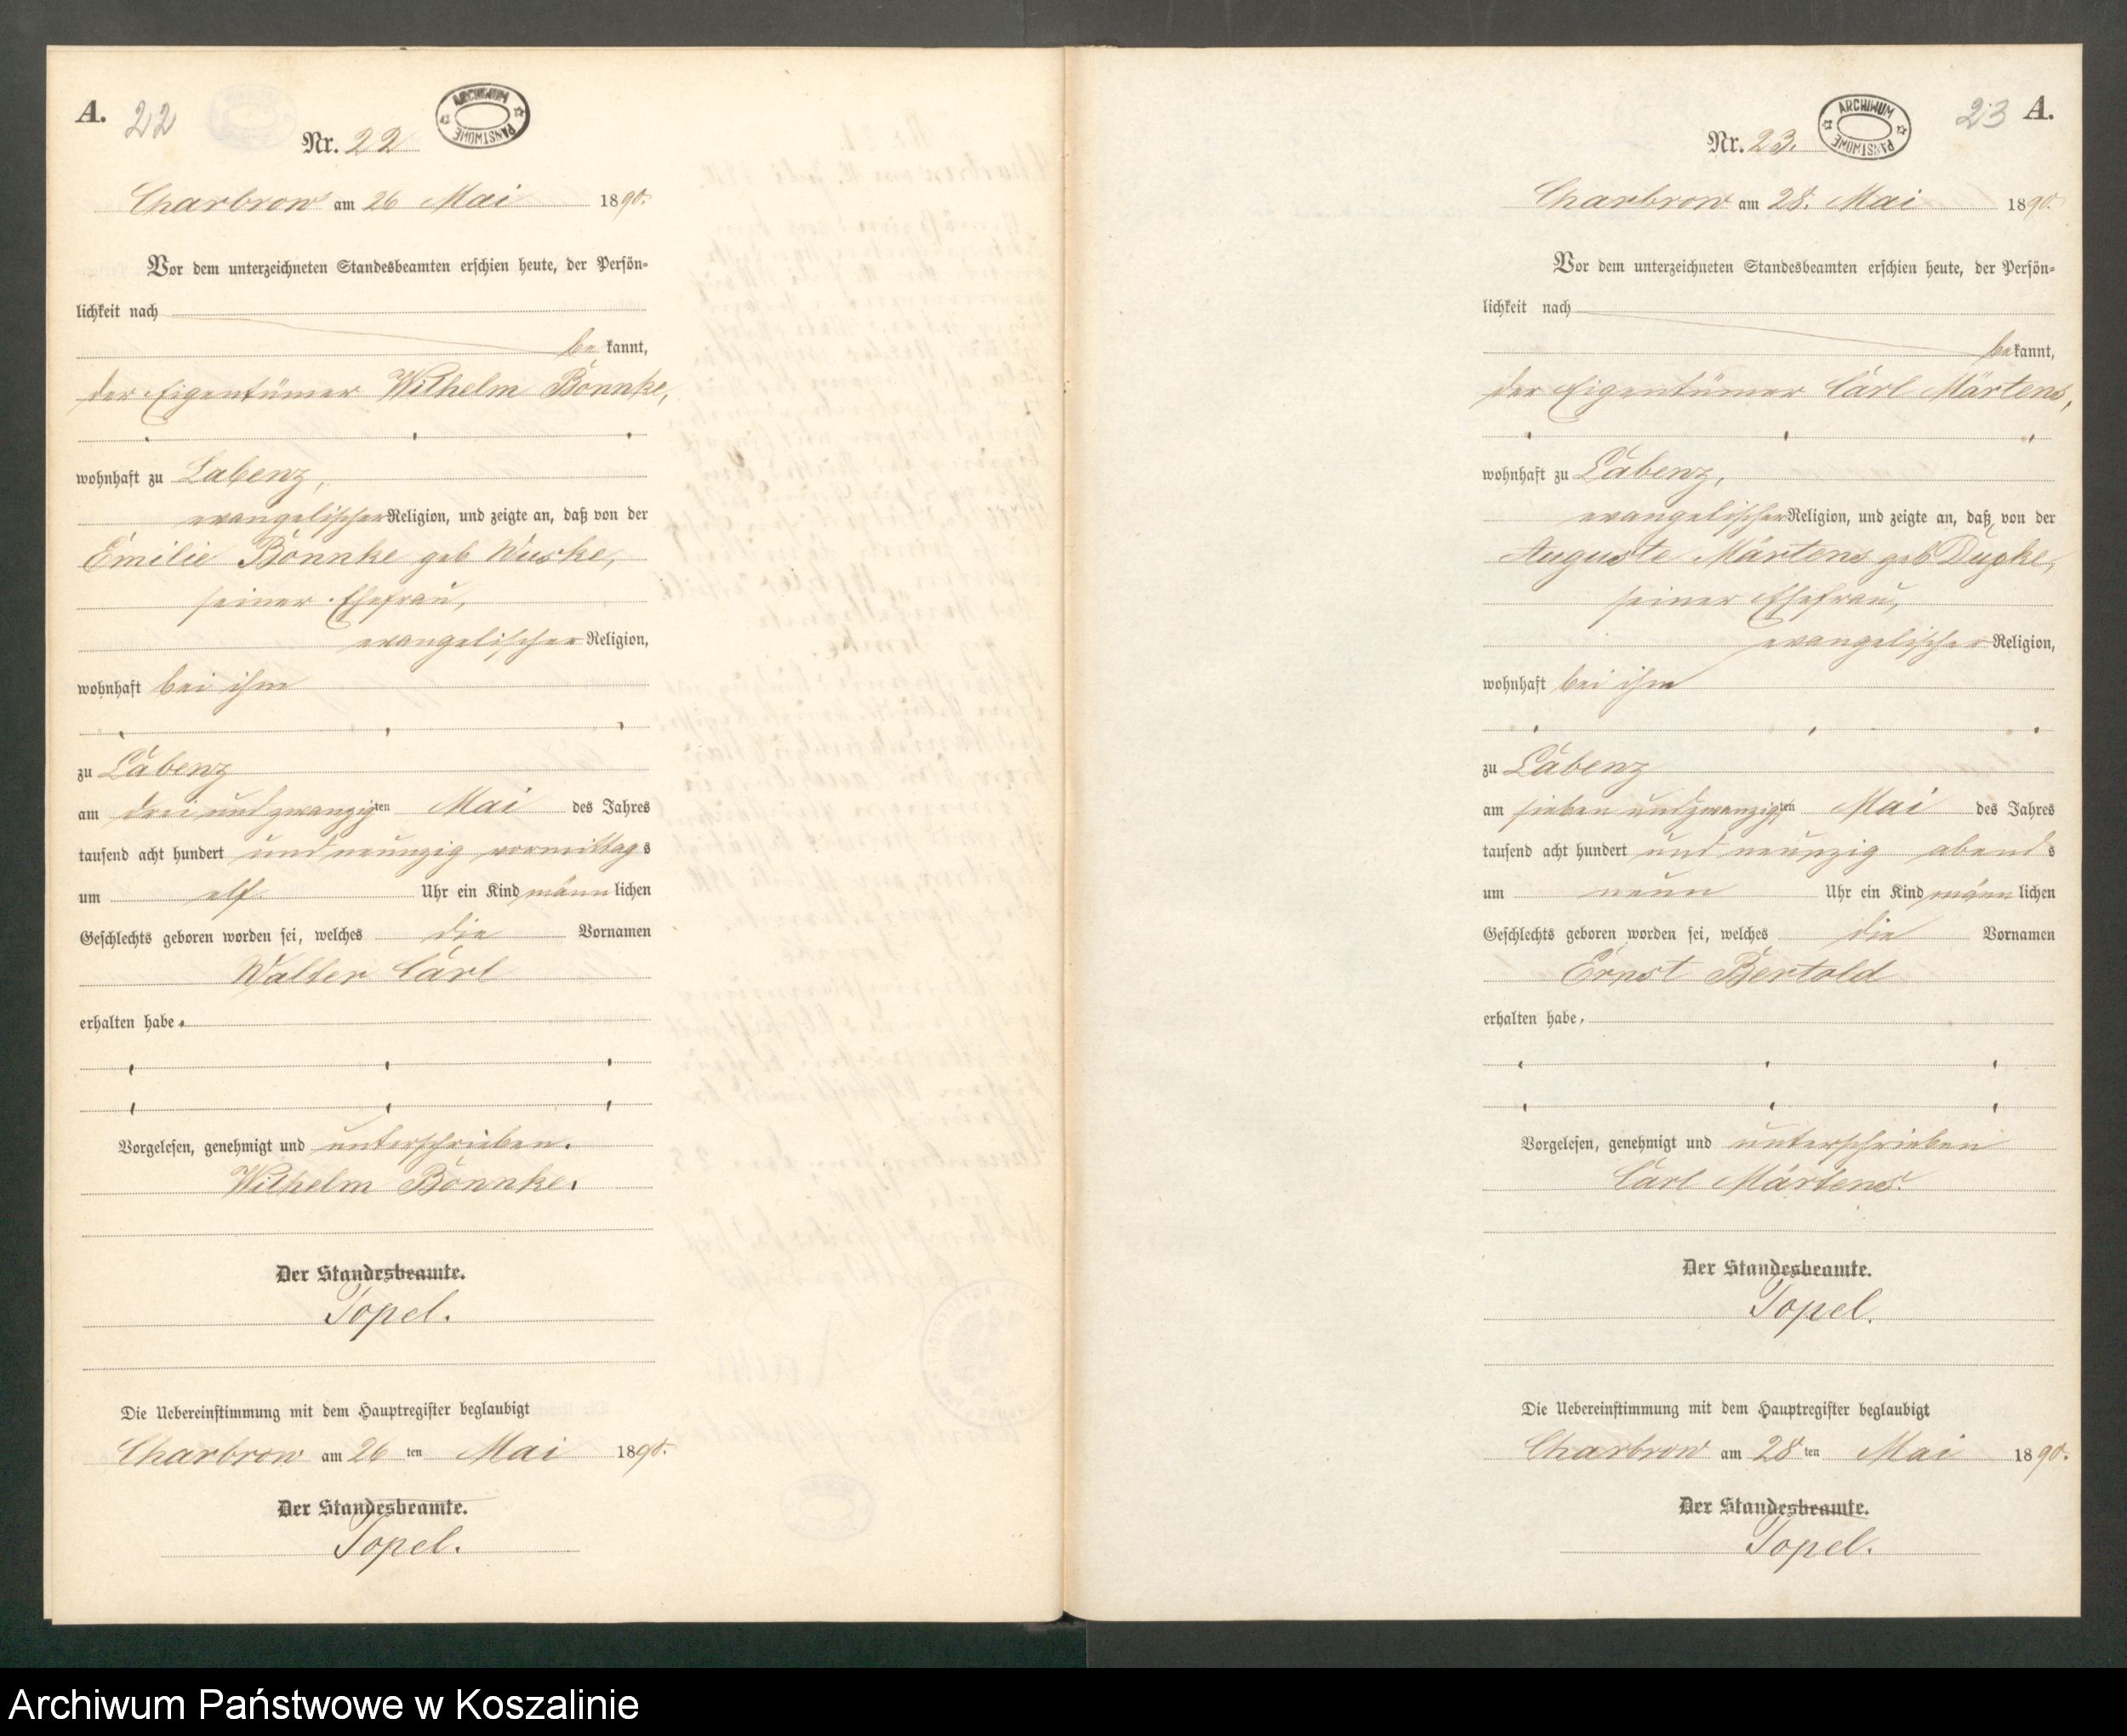 A. 22
Nr. 22
ARCHIWUM PAŃSTWOWE
Charbrow am 26 Mai 1890.
Vor dem unterzeichneten Standesbeamten erschien heute, der Persön=
lichkeit nach
be kannt,
der Eigentümer Wilhelm Bonnke,
wohnhaft zu Labenz,
evangelischer Religion, und zeigte an, daß von der
Emilie Bonnke geb
seiner Ehefrau,
evangelischer Religion,
wohnhaft bei ihm
zu Labenz
am drei und zwanzigten Mai des Jahres
tausend acht hundert und neunzig vormittags
um elf Uhr ein Kind männlichen
Geschlechts geboren worden sei, welches die Vornamen
Walter Carl
erhalten habe.
Vorgelesen, genehmigt und unterschrieben.
Wilhelm Bonnke.
Der Standesbeamte.
Topel.
Die Uebereinstimmung mit dem Hauptregister beglaubigt
Charbrow am 26 ten Mai 1890.
Der Standesbeamte.
Topel.
23 A.
Nr. 23.
ARCHIWUM PAŃSTWOWE
Charbrow am 28. Mai 1890.
Vor dem unterzeichneten Standesbeamten erschien heute, der Persön=
lichkeit nach
be kannt,
der Eigentümer Carl Märtens,
wohnhaft zu Labenz,
evangelischer Religion, und zeigte an, daß von der
Auguste Märtens geb
seiner Ehefrau,
evangelischer Religion,
wohnhaft bei ihm
zu Labenz
am sieben und zwanzigten Mai des Jahres
tausend acht hundert und neunzig abends
um neun Uhr ein Kind männlichen
Geschlechts geboren worden sei, welches die Vornamen
Ernst Bertold
erhalten habe.
Vorgelesen, genehmigt und unterschrieben
Carl Märtens.
Der Standesbeamte.
Topel.
Die Uebereinstimmung mit dem Hauptregister beglaubigt
Charbrow am 28 ten Mai 1890.
Der Standesbeamte.
Topel.
Archiwum Państwowe w Koszalinie